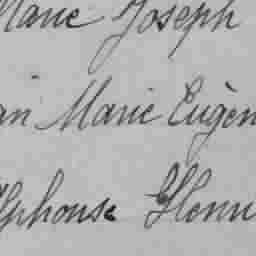 Marie Joseph
an Marie Eugèn
lphonse Henri